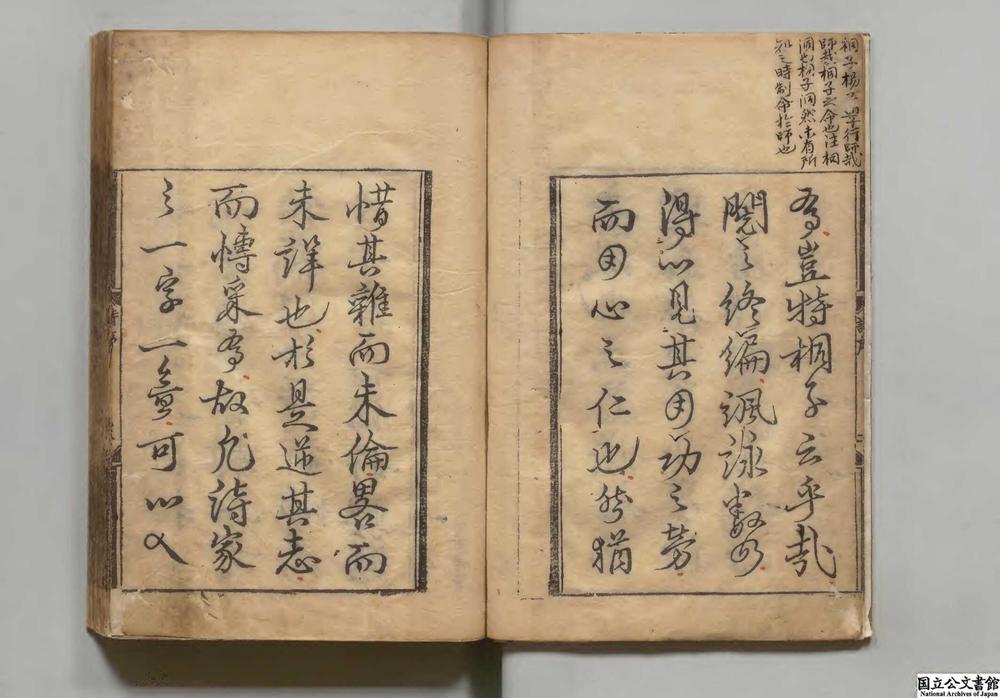 桐子揚子學行師哉
師哉桐子之命也注桐
洞也桐子洞然未有所
知之時制命於師也
焉豈特桐子云乎哉
閱之終編諷詠數四
得以見其用功之勞
而用心之仁也然猶
惜其雜而未倫畧而
未詳也於是遂其志
而博采焉故凡詩家
之一字一義可以入
国立公文書館
National Archives of Japan